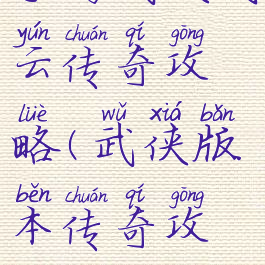 yún chuán qí gōng
云传奇攻
lüè wǔ xiá bǎn
略(武侠版
běn chuán qí gōng
本传奇攻